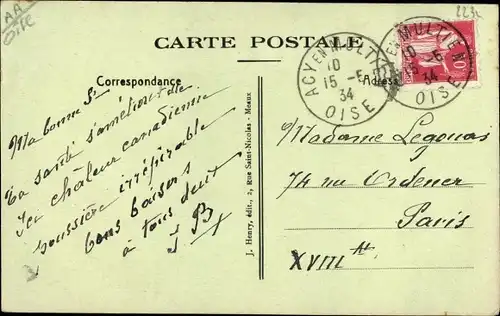 AA
Oise
2232
CARTE POSTALE
Correspondance
Adresse
ACY EN MULTIEN
10
15 -6
34
OISE
ACY EN MULTIEN
10
15 -6
34
OISE
Ma bonne
Ta santé s'améliore-t-elle
Ici chaleur canadienne
poussière irrespirable
bons baisers
à tous deux
J B
J. Henry, édit., 2, Rue Saint-Nicolas - Meaux
Madame
74 rue Ordener
Paris
XVIIIe